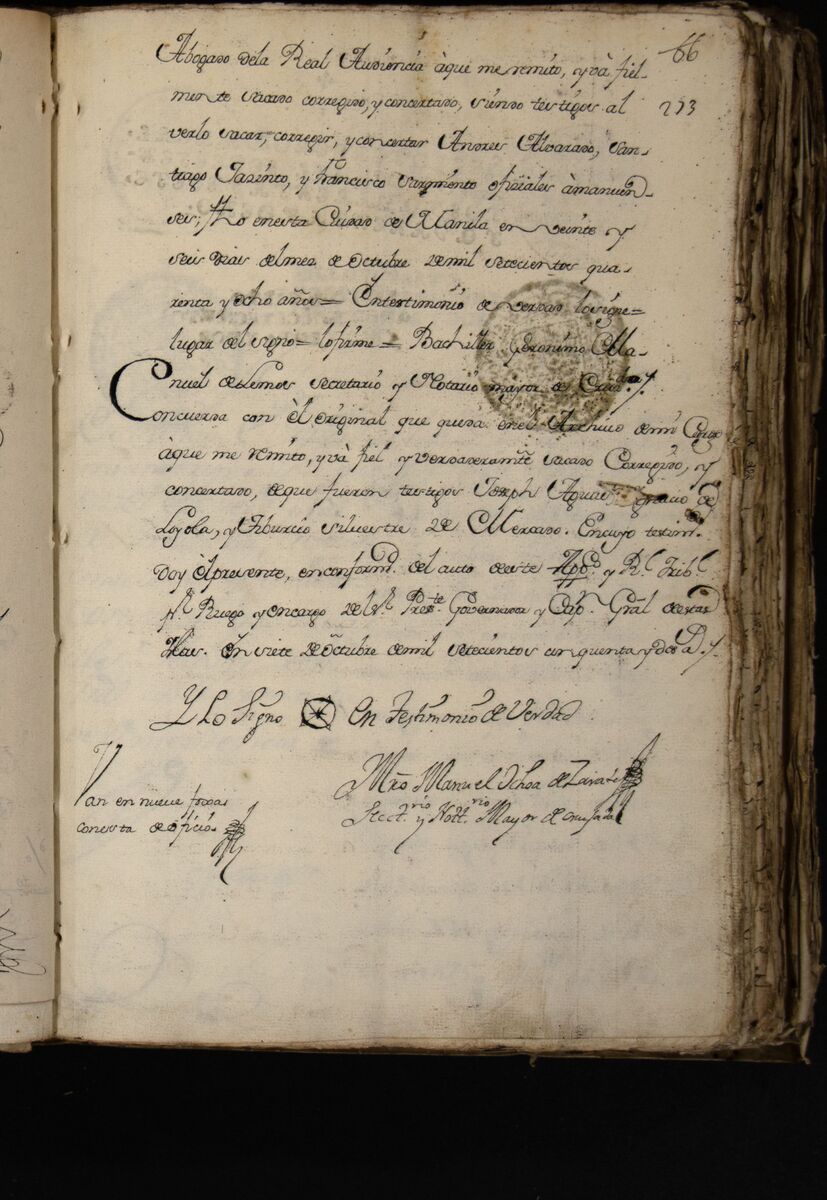 66
Abogado dela Real Audiencia àque me remito, y và fiel-
213
mente sacado corregido, y concertado, siendo testigos al
verlo sacar, corregir, y concertar Andres Alvarado, San-
tiago Jazinto, y Francisco Sarmiento ofiziales àmanuen-
ses; fho enesta Ciudad de Manila en veinte y
seis dias delmez de Octubre demil setecientos qua-
renta y ocho años = Entestimonio de verdad losigne =
lugar del signo = lo firme = Bachiller Geronimo Ma-
nuel deLemos secretario y Notario mayor de
Concuerda con èl original que queda enel Archivo demi Cargo
àque me remito, y và fiel y verdaderamte sacado Corregido, y
concertado, deque fueron testigos Joseph Ignacio de
Loyola, y Tiburcio silvestre de Mercado. Encuyo testim.
doy èlpresente, enconformd. del auto deeste y Rl. Tribl.
Ruego y encargo del Sr. Preste. Governador y Capn. Gral de estas
Yslas. En siete de Octubre demil setecientos cinquenta y dos
Y Lo Signo En Testimonio de Verdad
Mro Manuel Ochoa de Zarate
Secrt.rio y Nott.rio Mayor de cruzada
Van en nueve foxas
conesta de oficio